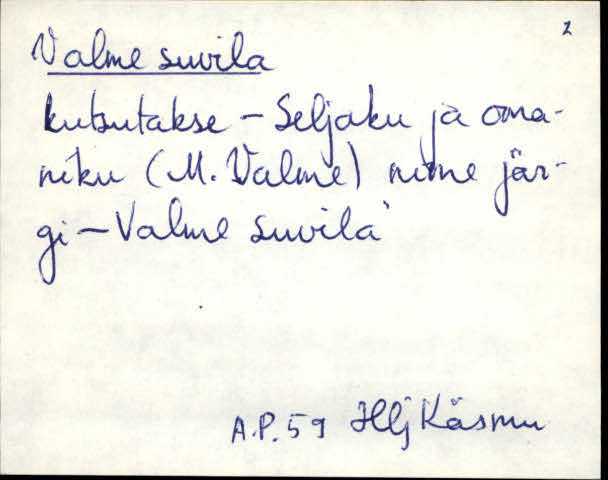 2
Valme suvila
kutsutakse – Seljaku ja oma-
niku (M. Valme) nime jär-
gi – Valme suvila'
A.P. 59 Hlj Käsmu